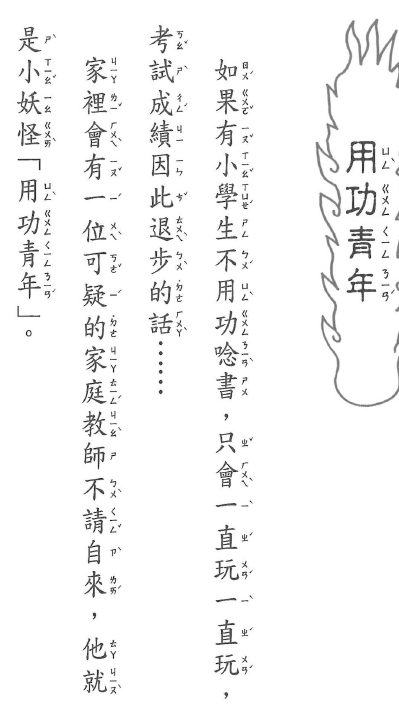 用功青年
如果有小學生不用功唸書，只會一直玩一直玩，
考試成績因此退步的話⋯⋯
家裡會有一位可疑的家庭教師不請自來，他就
是小妖怪「用功青年」。